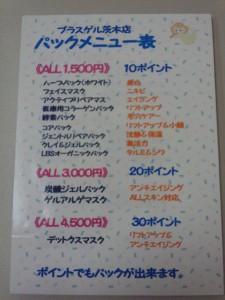 プラスゲル茨木店
パックメニュー表
《ALL 1,500円》 10ポイント
ハーブパック(ホワイト) 美白
フェイスマスク ニキビ
アクティブリペアマスク エイジング
医療用コラーゲンパック リフトアップ
酵素パック 毛穴ケアー
コアパック リフトアップ&小顔
ジェントルリペアパック 沈静&保湿
クレイ&ジェルパック 無活力
LBSオーガニックパック タルミ&シワ
《ALL 3,000円》 20ポイント
炭酸ジェルパック アンチエイジング
ゲルアルゲマスク ALLスキン対応
《ALL 4,500円》 30ポイント
デットクスマスク リフトアップ&
アンチエイジング
ポイントでもパックが出来ます。